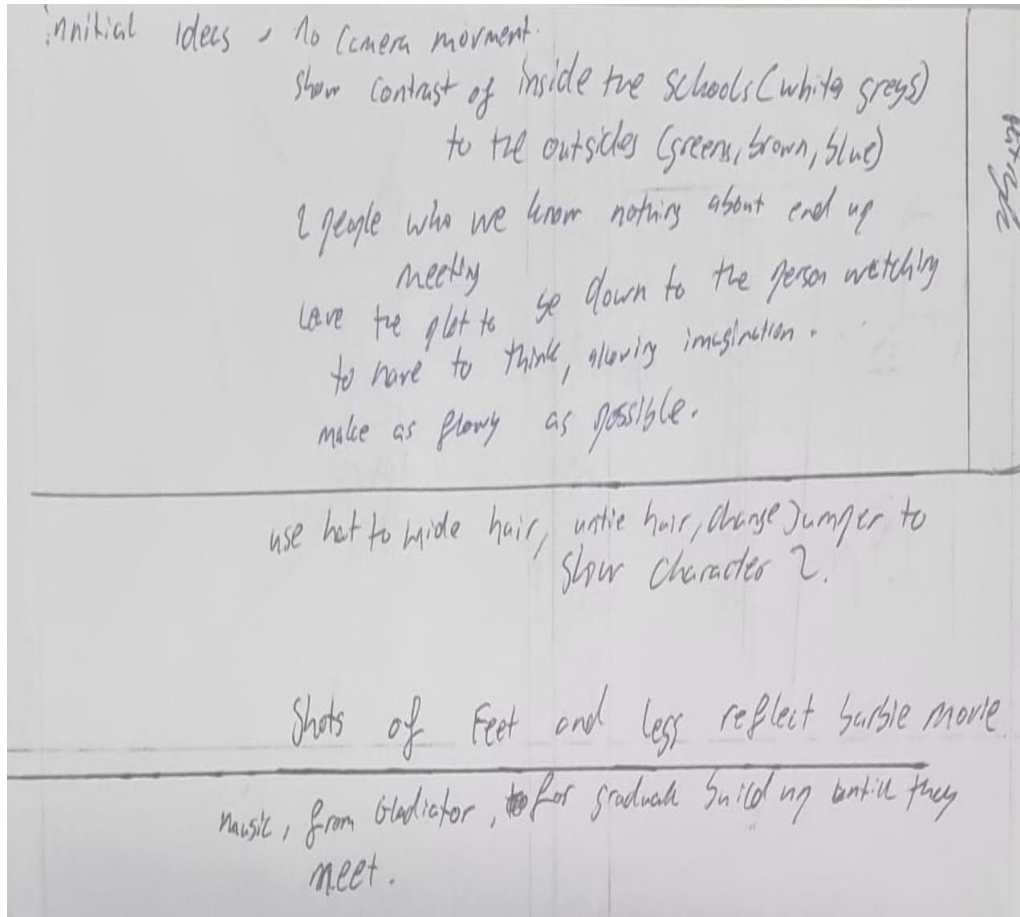 innitial ideas, no camera movment.
show contrast of inside the schools (white greys)
to the outsides (greens, brown, blue)
2 people who we know nothing about end up
meeting
leave the plot to be down to the person watching
to have to think, allowing imagination.
make as flowy as possible.
use hat to hide hair, untie hair, change Jumper to
show character 2.
Shots of Feet and legs reflect barbie movie.
music, from Gladiator, for gradual build up untill they
meet.